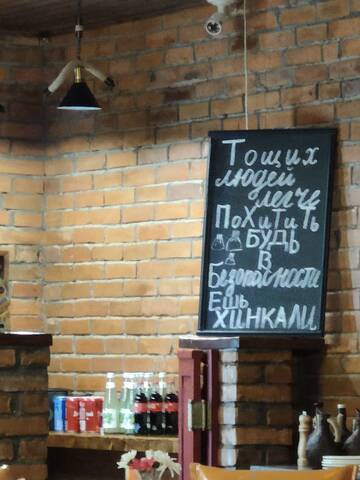 Тощих
людей
легче
ПоХитить
БУДЬ
В
Безопасности
Ешь
ХИНКАЛИ